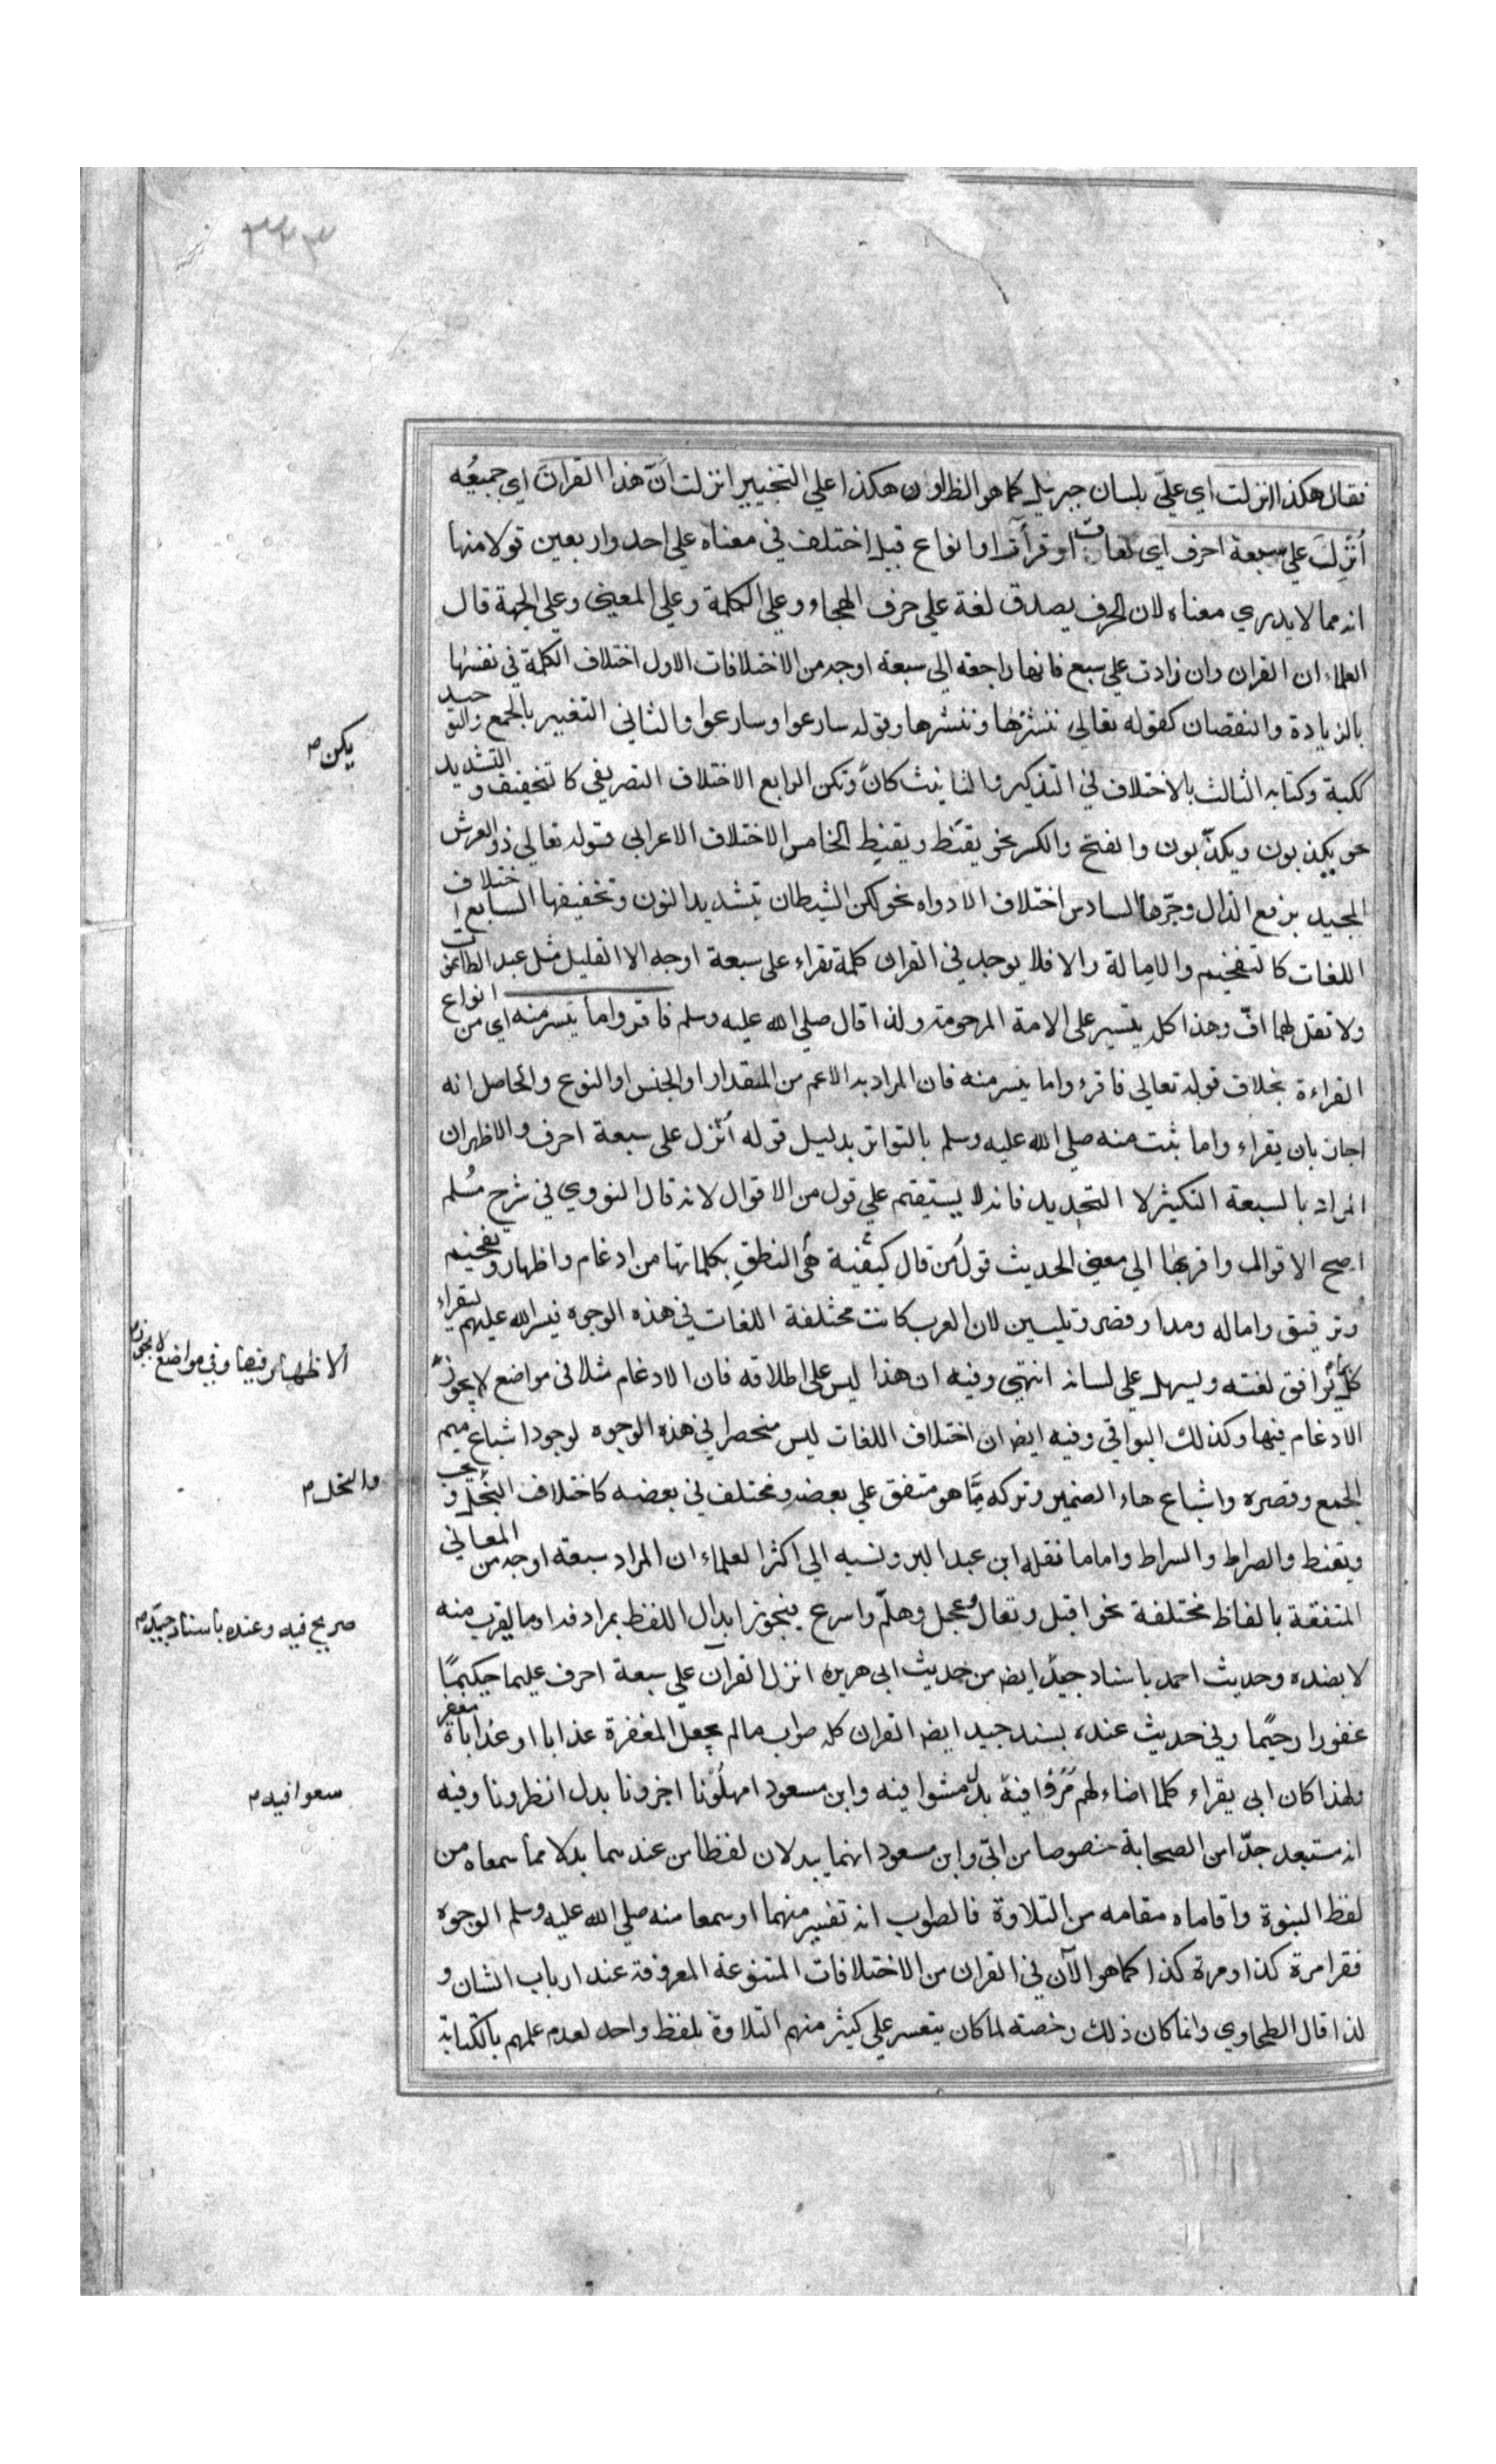 ٣٢٣
فقال هكذا انزلت اي علي بلسان جبرئيل كما هو الظ اوان هكذا علي التخيير انزلت انّ هذا القرآن اي جميعُه
اُنْزِلَ علي سبعة احرف اي لغات او قرأت او انواع قيل اختلف في معناه علي احد واربعين قولا منها
انه مما لا يدري معناه لان الحرف يصدق لغة علي حرف الهجاء وعلي الكلمة وعلي المعني وعلي الجهة قال
العلماء ان القران وان زادت علي سبع فانها راجعة الي سبعة اوجه من الاختلافات الاول اختلاف الكلمة في نفسها
بالزيادة والنقصان كقوله تعالي ننشزها وننشرها وقوله سارعوا وسارعوا والثاني التغيير بالجمع والتوحيد
ككتبه وكتابه الثالث بالاختلاف في التذكير والتانيث كان وتكن الرابع الاختلاف التصريفي كا تخفيف والتشديد
يكن م
نحو يكذبون ويكذّبون والفتح والكسر نحو يقنَط ويقنِط الخامس الاختلاف الاعرابي كقوله تعالي ذو العرش
المجيد برفع الذال وجرّها السادس اختلاف الادواه نحو لكن الشيطان بتشديد النون وتخفيفها السابع اختلاف
اللغات كالتفخيم والامالة والا فلا يوجد في القران كلمة تقراء علي سبعة اوجه الا القليل مثل عبد الطاغوت
ولا تقل لهما افّ وهذا كله تيسير علي الامة المرحومة ولذا قال صلي الله عليه وسلم فاقرواما تيسر منه اي من انواع
القراءة بخلاف قوله تعالي فاقرءواما تيسر منه فان المراد به الاعم من المقدار او الجنس او النوع والحاصل انه
اجاز بان يقراء واما ثبت منه صلي الله عليه وسلم بالتواتر بدليل قوله اُنزل علي سبعة احرف والاظهر ان
المراد بالسبعة التكثير لا التحديد فانه لا يستقيم علي قول من الاقوال لانه قال النووي في شرح مُسلم
اصح الاقوال واقربها الي معني الحديث قولُ من قال كيفية هي النطق بكلماتها من ادغام واظهار وتفخيم
وترقيق وامالة ومدا وقصر وتليين لان العرب كانت مختلفة اللغات في هذه الوجوه فيسر الله عليهم ليقراء
كل بما يوافق لغته ويسهل علي لسانه انتهي وفيه ان هذا ليس علي اطلاقه فان الادغام مثلا في مواضع لا يجوز
الاظهار فيها وفي مواضع لا يجوز م
الادغام فيها وكذلك البواقي وفيه ايضا ان اختلاف اللغات ليس منحصرا في هذه الوجوه لوجود اشباع ميم
الجمع وقصره واشباع هاء الضمير وتركه مما هو متفق علي بعضه ومختلف في بعضه كاختلاف البخل و
والبخل م
ويقنط والصراط والسراط واما ما نقله ابن عبد البر ونسبه الي اكثر العلماء ان المراد سبعة اوجه من المعاني
المتفقة بالفاظ مختلفة نحو اقبل وتعال وعجل وهلمّ واسرع فيجوز ابدال اللفظ بمرادفه او ما يقرب منه
صريح فيه وعنده باسناد جيّد م
لا بضده وحديث احمد باسناد جيد ايضا من حديث ابي هريره انزل القرآن علي سبعة احرف عليما حكيما
غفورا رحيما وفي حديث عنده بسند جيد ايضا القران كله صواب مالم يجعل المغفرة عذابا او عذابا مغفرة
ولهذا كان ابي يقراء كلما اضاء لهم مروا فيه بدل مشوا فيه وابن مسعود امهلونا اخرونا بدل انظرونا وفيه
سعوا فيه م
انه مستبعد جدّا من الصحابة خصوصا من ابيّ وابن مسعود انهما يبدلان لفظا من عندهما بدلا مما سمعاه من
لفظ النبوة واقاماه مقامه من التلاوة فالصواب انه تفسير منهما او سمعا منه صلي الله عليه وسلم الوجوه
فقرا مرة كذا ومرة كذا كما هو الآن في القران من الاختلافات المتنوعة المعروفة عند ارباب الشان و
لذا قال الطحاوي وانما كان ذلك رخصة لما كان يتعسر علي كثير منهم التلاوة بلفظ واحد لعدم علمهم بالكتابة